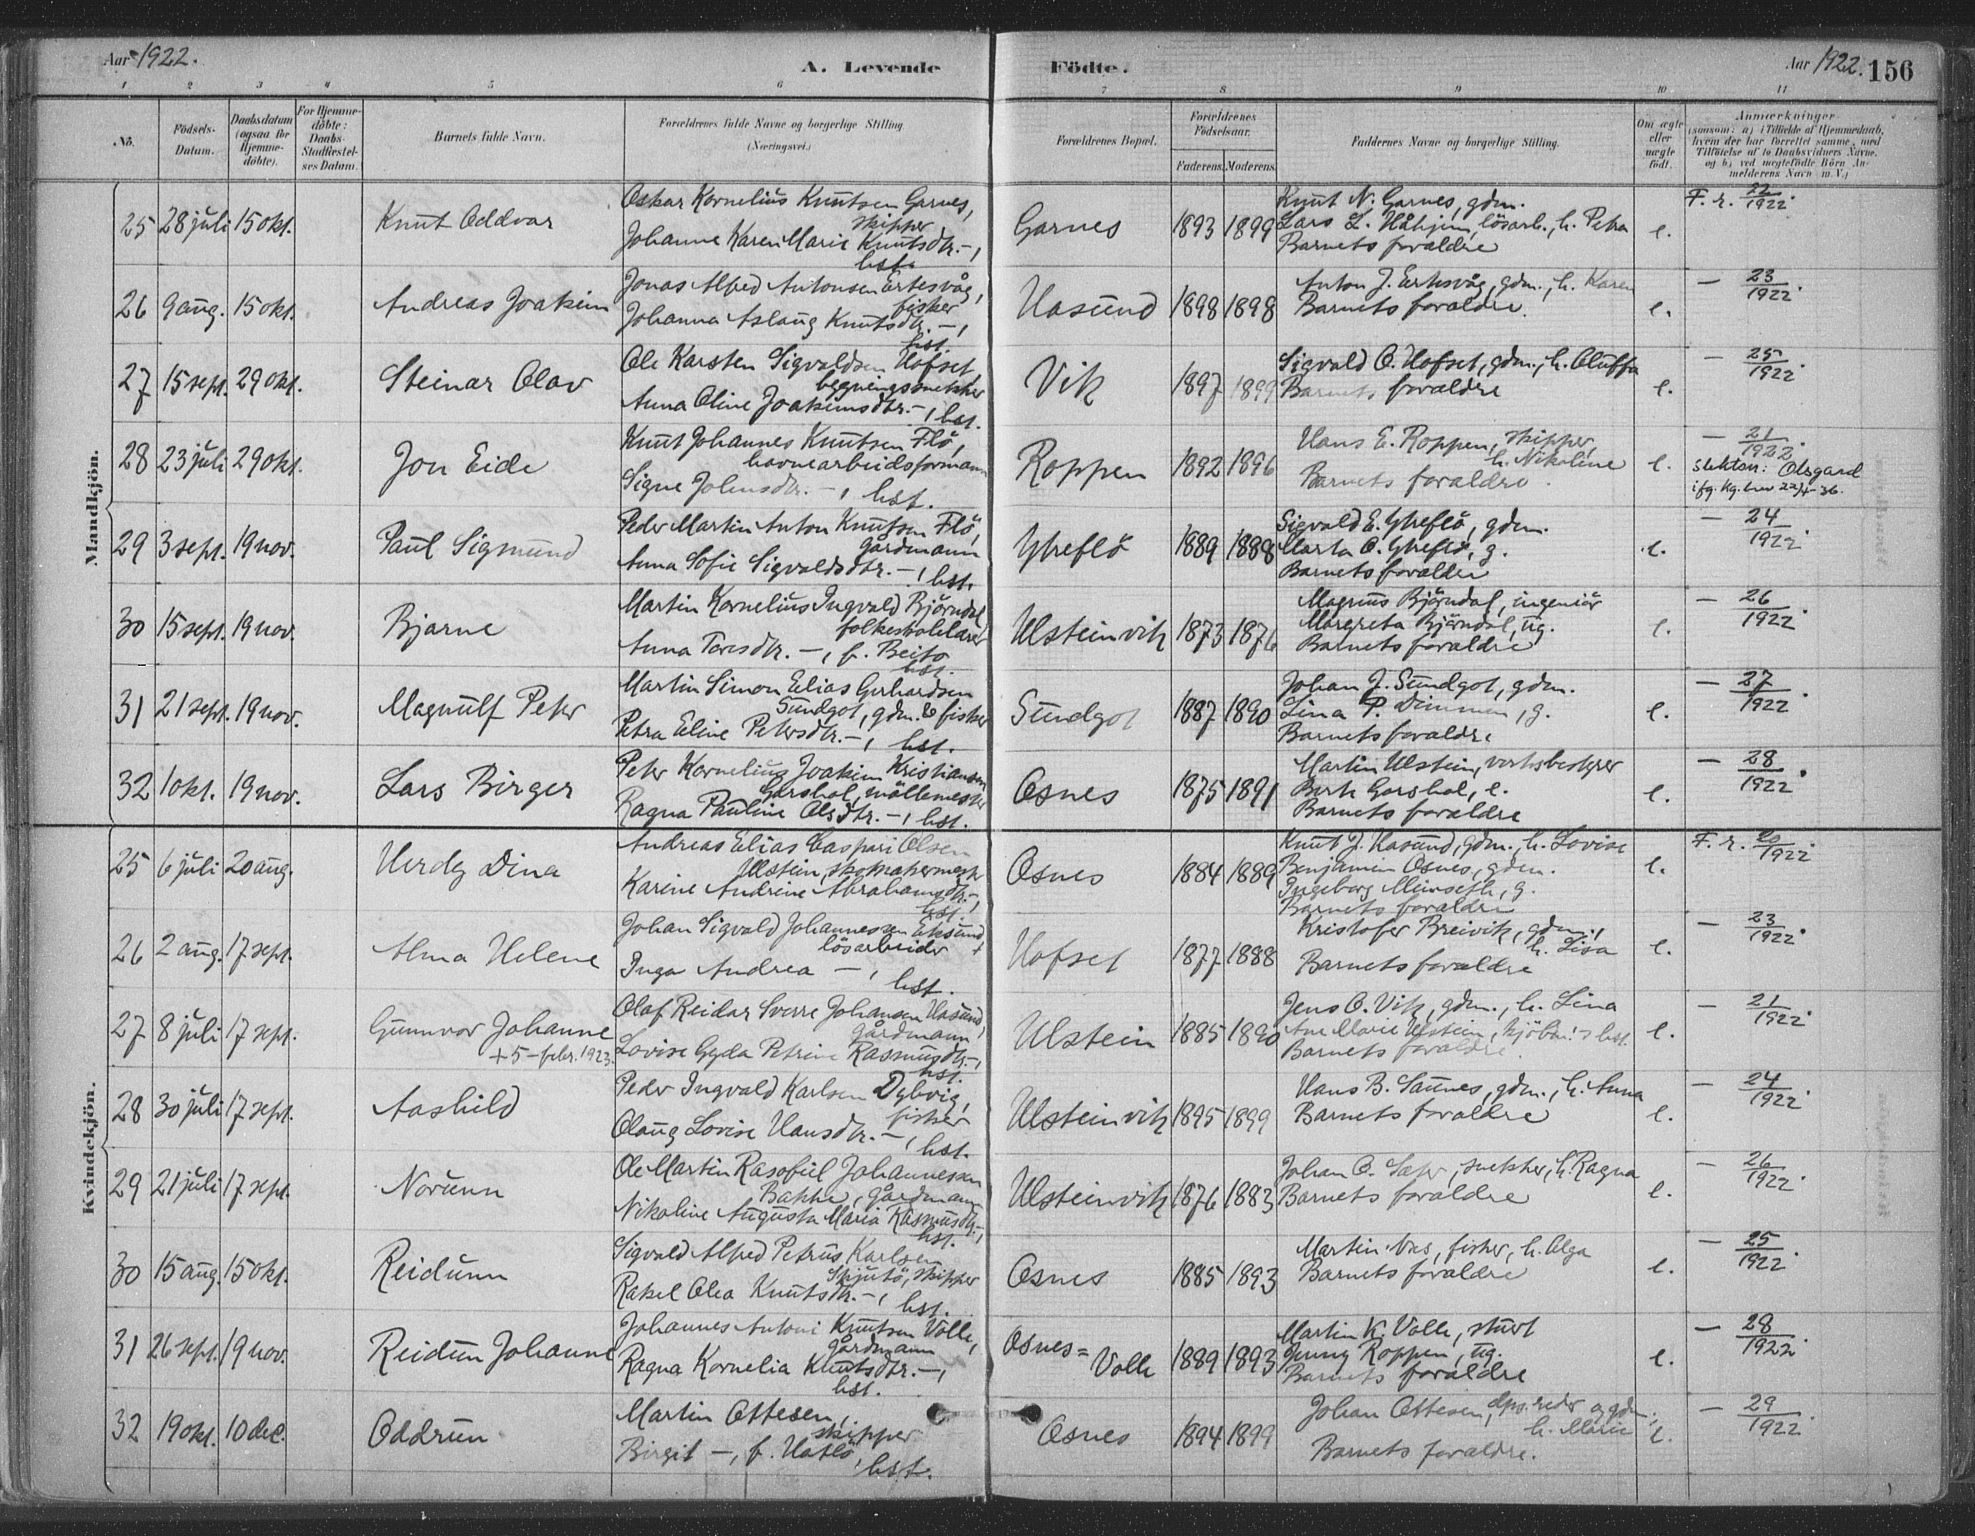 Aar 1922.
A. Levende Födte.
Aar 1922. 156
1 2 3 4 5 6 7 8 9 10 11
No.
Födsels-Datum.
Daabsdatum (ogsaa for Hjemme-döbte).
For Hjemme-döbte: Daabs-Stadfæstel-ses Datum.
Barnets fulde Navn.
Forældrenes fulde Navne og borgerlige Stilling (Næringsvei.)
Forældrenes Bopæl.
Forældrenes Födselsaar.
Faderens. Moderens.
Faddernes Navne og borgerlige Stilling.
Om ægte eller uægte födt.
Anmærkninger
(saasom: a) i Tilfælde af Hjemmedaab,
hvem der har forrettet samme, med
Tilföielse af to Daabsvidners Navne,
og b) ved uægtefödte Börn An-
melderens Navn m. V.)
Mandkjön.
25 28 juli 15 okt. Knut Oddvar
Oskar Kornelius Knutsen Garnes,
skipper
Johanne Karen Marie Knutsdtr. —,
hst.
Garnes 1893 1899
Knut N. Garnes, gdm.
Lars L. Håhjem, lösarb., h. Petra
Barnets foraldre
e. F. r. 22/1922.
26 9 aug. 15 okt. Andreas Joakim
Jonas Alfred Antonsen Ertesvåg,
fisker
Johanna Aslaug Knutsdtr. —,
hst.
Hasund 1898 1898
Anton J. Ertesvåg, gdm., h. Karen
Barnets foraldre.
e. — 23/1922.
27 15 sept. 29 okt. Steinar Olav
Ole Karsten Sigvaldsen Hofset,
bygningssnekker
Anna Oline Joakimsdtr. —, hst.
Vik 1897 1899
Sigvald O. Hofset, gdm., h. Oluffa
Barnets foraldre
e. — 25/1922.
28 23 juli 29 okt. Jon Eide
Knut Johannes Knutsen Flö,
havnearbeidsformann
Signe Johnsdtr. —, hst.
Roppen 1892 1896
Hans E. Roppen, skipper,
h. Nikoline
Barnets foraldre.
e. — 21/1922.
slektsn: Olsgard
ifg. Kg. brev 22/4-36.
29 3 sept. 19 nov. Paul Sigmund
Peder Martin Anton Knutsen Flö,
gårdmann
Anna Sofie Sigvaldsdtr. —, hst.
Ytreflö 1889 1888
Sigvald E. Ytreflö, gdm.
Marta O. Ytreflö, g.
Barnets foraldre
e. — 24/1922.
30 15 sept. 19 nov. Bjarne
Martin Kornelius Ingvald Björndal,
folkeskolelærer
Anna Toresdtr. —, f. Beito
hst.
Ulsteinvik 1873 1876
Magnus Björndal, ingeniör
Margreta Björndal, ug.
Barnets foraldre
e. — 26/1922.
31 21 sept. 19 nov. Magnulf Peter
Martin Simon Elias Gerhardsen
Sundgot, gdm. & fisker
Petra Eline Petersdtr. —, hst.
Sundgot 1887 1890
Johan J. Sundgot, gdm.
Lina P. Dimmen, g.
Barnets foraldre
e. — 27/1922.
32 1 okt. 19 nov. Lars Birger
Peter Kornelius Joakim Kristiansen
Garshol, möllemester
Ragna Pauline Olsdtr. —, hst.
Osnes 1875 1891
Martin Ulstein, verksbestyrer
Berte Garshol, e.
Barnets foraldre
e. — 28/1922.
Kvindekjön.
25 6 juli 20 aug. Herdy Dina
Andreas Elias Caspari Olsen
Ulstein, skomakermester
Karine Andrine Abrahamsdtr. —,
hst.
Osnes 1884 1889
Knut J. Hasund, gdm., h. Lovise
Benjamin Osnes, gdm.
Ingeborg Meinseth, g.
Barnets foraldre
e. F. r. 20/1922.
26 2 aug. 17 sept. Alma Helene
Johan Sigvald Johannessen Eksund,
lösarbeider
Inga Andrea —, hst.
Hofset 1877 1888
Kristofer Breivik, gdm.,
h. Lisa
Barnets foraldre
e. — 23/1922.
27 8 juli 17 sept. Gunnvor Johanne
+ 5 – febr. 1923.
Olaf Reidar Sverre Johansen Hasund,
gårdmann
Lovise Gyda Petrine Rasmusdtr. —,
hst.
Ulstein 1885 1890
Jens O. Vik, gdm., h. Lina
Ane Marie Ulstein, kjöbm.s hst.
Barnets foraldre.
e. — 21/1922.
28 30 juli 17 sept. Aashild
Peder Ingvald Karlsen Dybvig,
fisker
Olaug Lovise Hansdtr. —, hst.
Ulsteinvik 1895 1899
Hans B. Saunes, gdm., h. Anna
Barnets foraldre
e. — 24/1922.
29 21 juli 17 sept. Norunn
Ole Martin Rasofiel Johannessen
Bakke, gårdmann
Nikoline Augusta Maria Rasmusdtr. —,
hst.
Ulsteinvik 1876 1883
Johan O. Sæter, snekker, h. Ragna
Barnets foraldre
e. — 26/1922.
30 15 aug. 15 okt. Reidunn
Sigvald Alfred Petrus Karlsen
Skjutö, skipper
Rakel Olea Knutsdtr. —, hst.
Osnes 1885 1893
Martin Aas, fisker, h. Olga
Barnets foraldre
e. — 25/1922.
31 26 sept. 19 nov. Reidun Johanne
Johannes Antoni Knutsen Volle,
gårdmann
Ragna Kornelia Knutsdtr. —,
hst.
Osnes=
Volle 1889 1893
Martin K. Volle, sturt
Jenny Roppen, ug.
Barnets foraldre
e. — 28/1922.
32 19 okt. 10 dec. Oddrun
Martin Ottesen,
skipper
Birgit —, f. Hatlö,
hst.
Osnes 1894 1899
Johan Ottesen, dps.reder og gdm.,
h. Marie
Barnets foraldre.
e. — 29/1922.